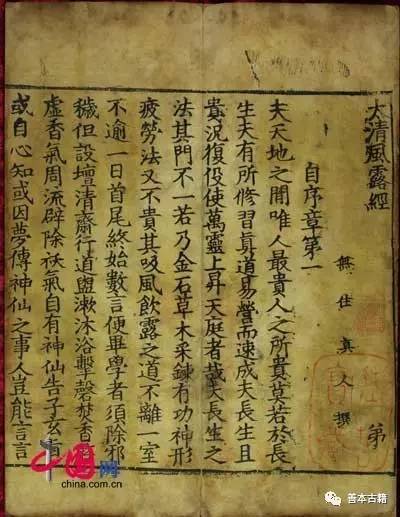 太清風露經
無住真人撰
第
自序章第一
夫天地之間唯人最貴人之所貴莫若於長
生夫有所修習真道易營而速成夫長生且
貴況復役使萬靈上昇天庭者哉夫長生之
法其門不一若乃金石草木采鍊有功神形
疲勞法又不貴其吸風飲露之道不離一室
不逾一日首尾終始數言使畢學者須除邪
穢但設壇清齋行道盥漱沐浴擊磬焚香
虛香氣周流辟除祅氣自有神仙告子玄
或自心知或因夢傳神仙之事人豈能言言
中国网
china.com.cn
善本古籍